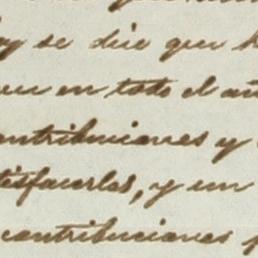 se dice que
en todo el
contribuciones y
satisfacerlas, y un
contribuciones